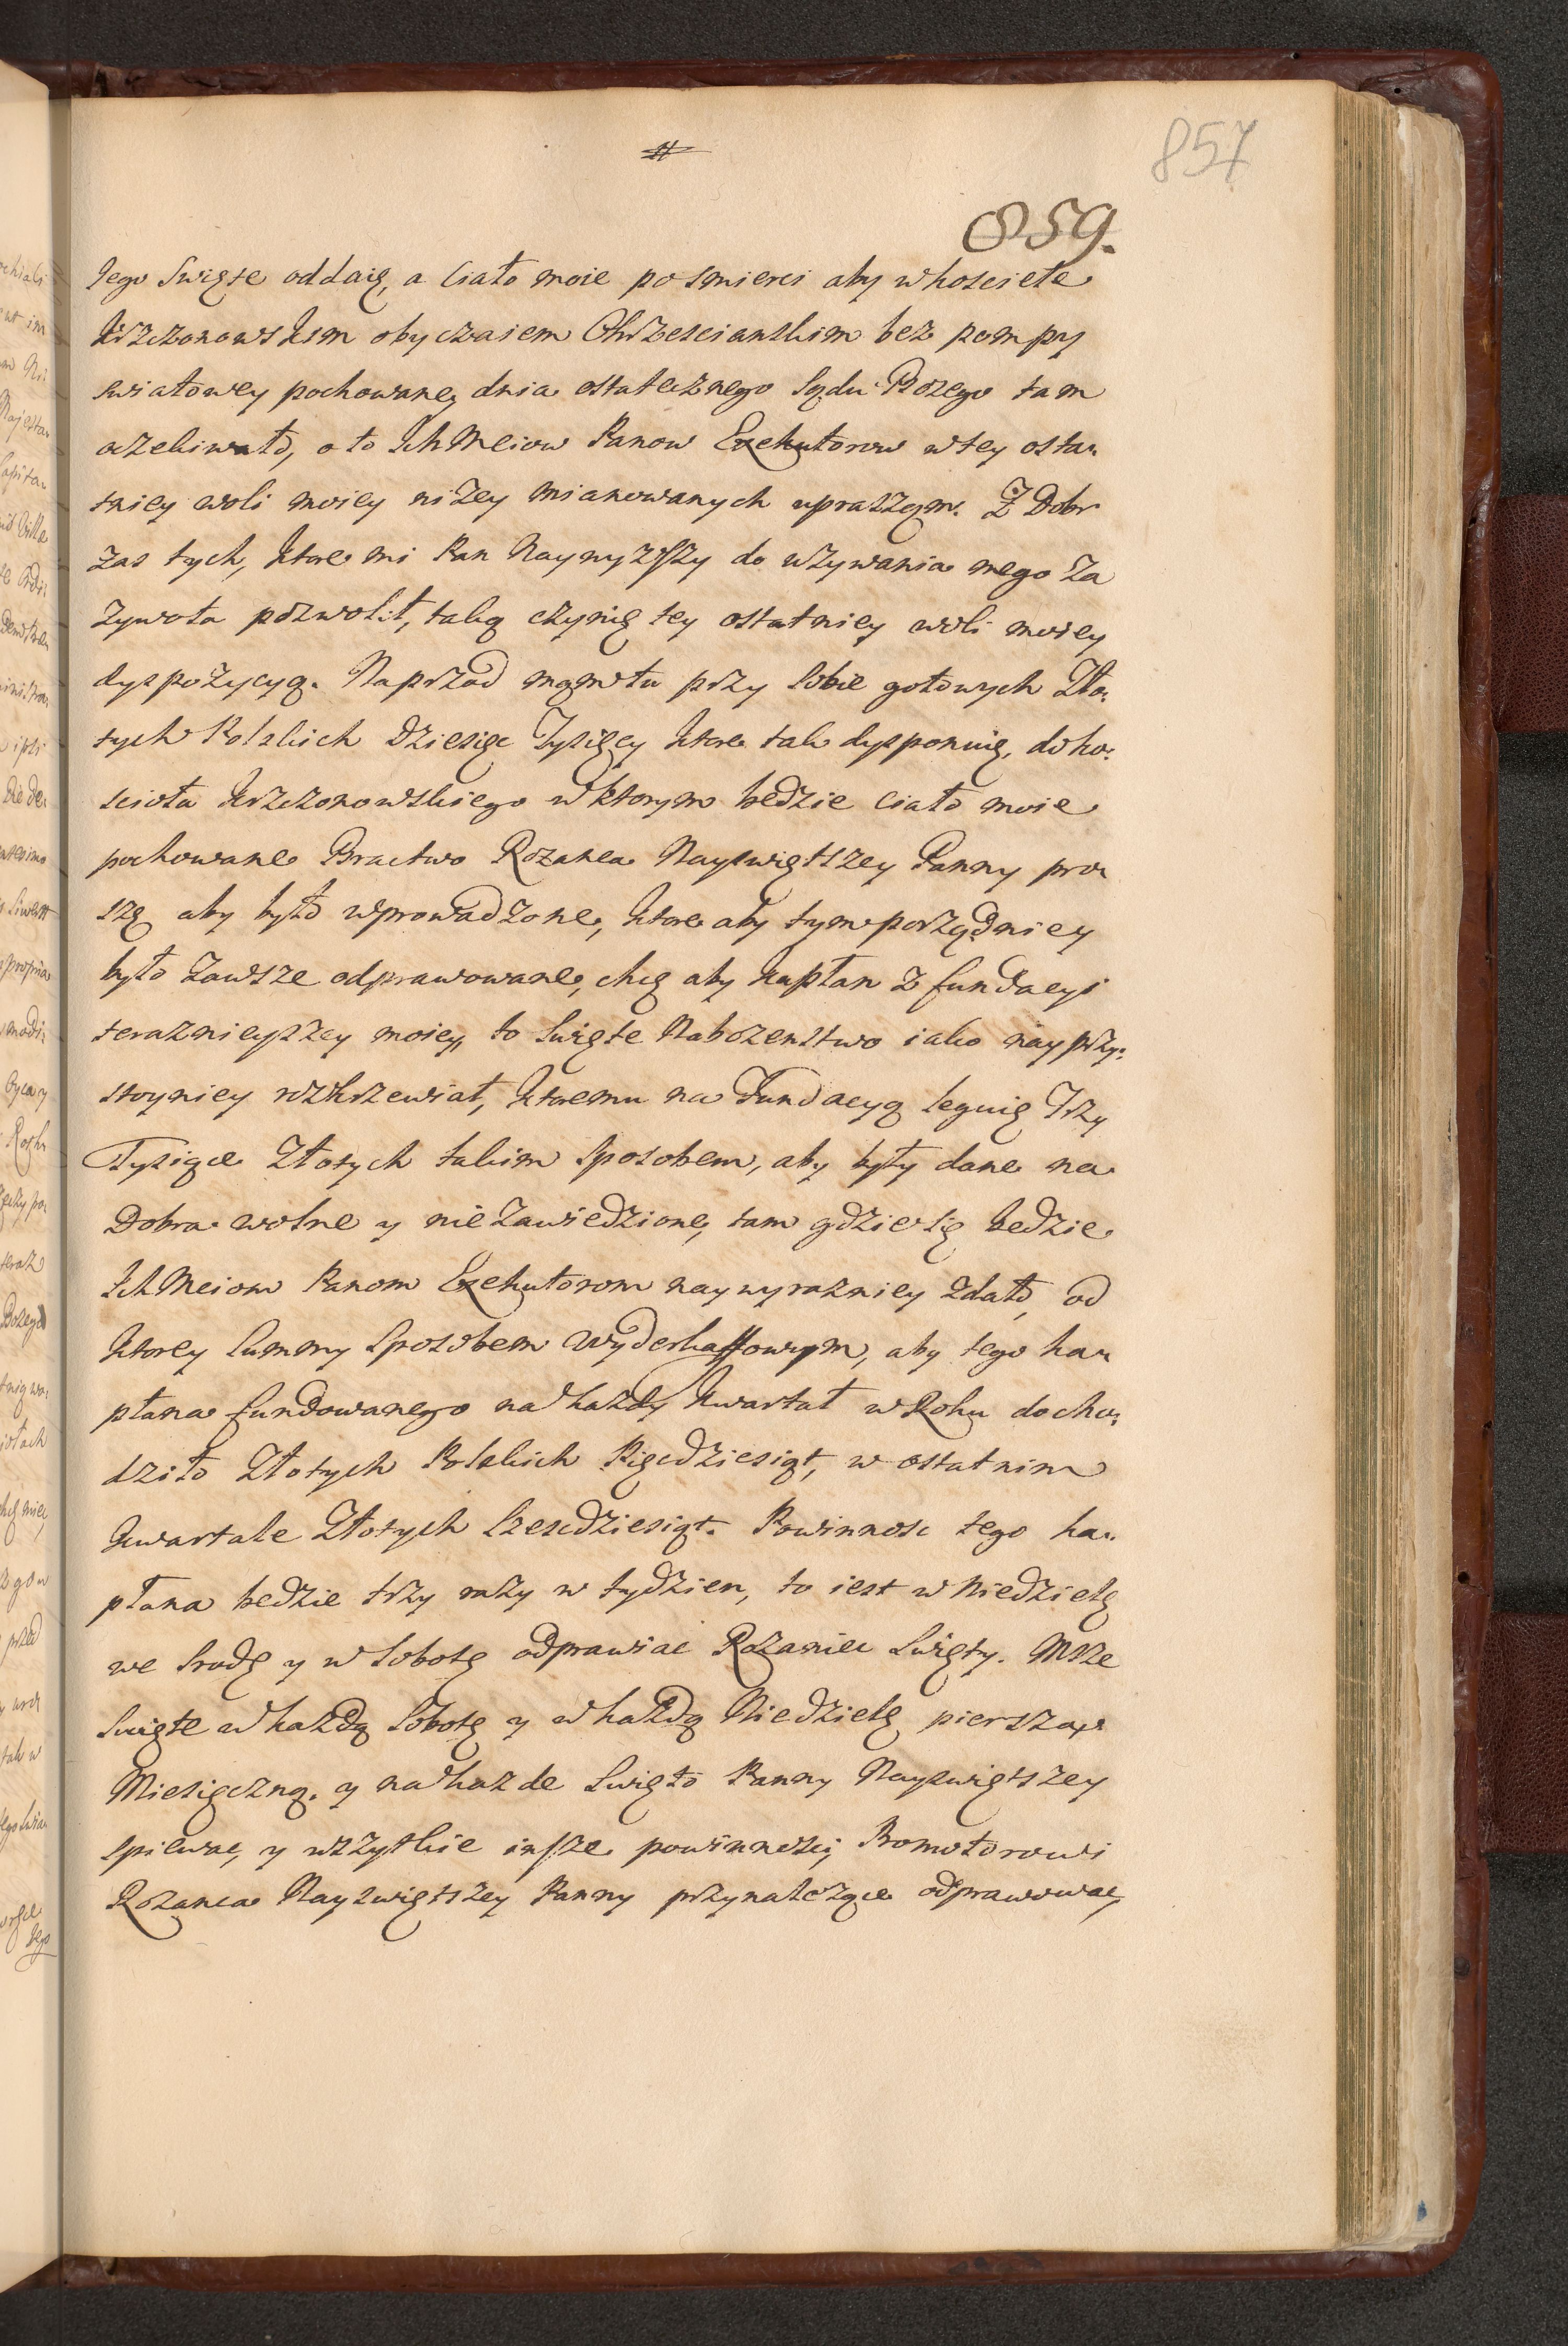 857
859.
Jego Swięte oddaię, a Ciało moie po smierci aby w kosciele
Krzczonowskim obyczaiem Chrzescianskim bez pompy
swiatowey pochowane, dnia ostatecznego Sądu Bozego tam
oczekiwało, o to IchMciow Panow Exekutorow w tey osta:
tniey woli moiey niżey mianowanych upraszam. Z Dobr
zas tych, ktore mi Pan Naywyższy do używania mego za
żywota pozwolił, taką czynię tey ostatniey woli moiey
dyspozycyą. Naprzod mam tu przy sobie gotowych Zło:
tych Polskich Dziesięc Tysięcy ktore tak dysponuię, do ko:
sciola Krzczonowskiego w ktorym będzie ciało moie
pochowane Bractwo Rozanca Nayswiętszey Panny pro:
szę aby było wprowadzone, ktore aby tym porządniey
było zawsze odprawowane, chcę aby kapłan z fundacyi
teraznieyszey moiey, to Swięte Nabozenstwo iako nayprzy:
stoyniey rozkrzewiał, ktoremu na Fundacyą leguię Trzy
Tysiące Złotych takim sposobem, aby były dane na
Dobra wolne y nie zawiedzione, tam gdzie się będzie
IchMciom Panom Exekutorom naywyrazniey zdało, od
ktorey Summy sposobem wyderkaffowym, aby tego ka:
płana fundowanego na każdy kwartał w Roku docho:
dziło Złotych Polskich Pięcdziesiąt, w ostatnim
kwartale Złotych Szescdziesiąt. Powinnosc tego ka:
płana będzie trzy razy w tydzien, to iest w Niedzielę
we Srodę y w Sobotę odprawiac Rozaniec Swięty. Msze
Swięte w każdą Sobotę y w każdą Niedzielę pierszą
Miesięczną, y na każde Swięto Panny Nayswiętszey
spiewac, y wszytkie insze powinnosci, Promotorowi
Rozanca Nayswiętszey Panny przynależące odprawowac,